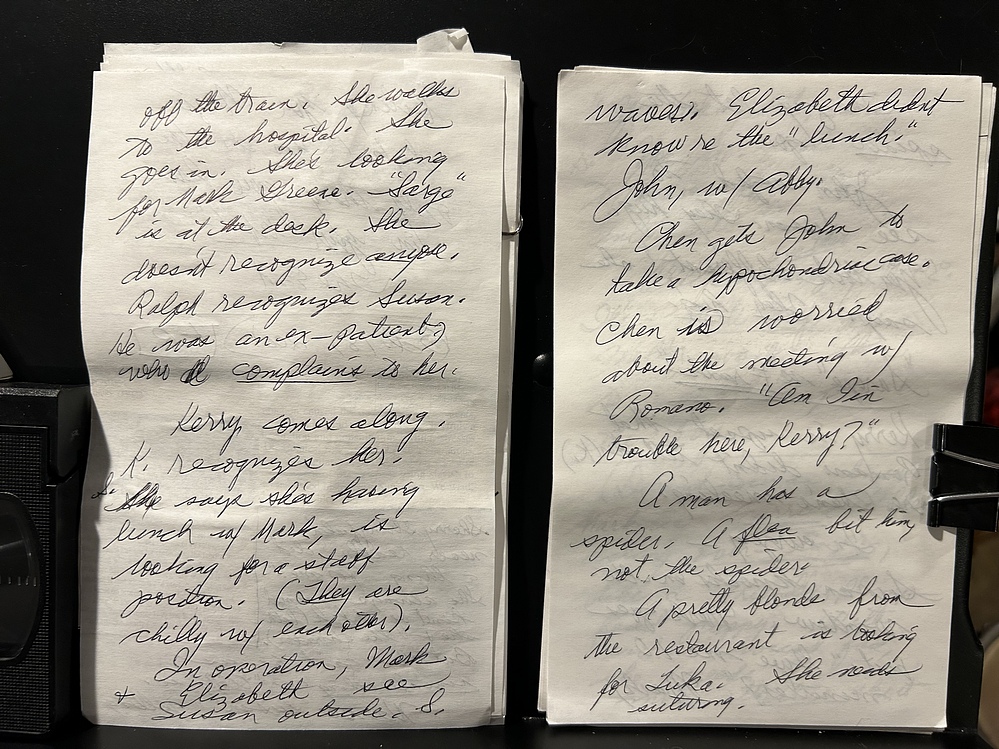 off the train. She walks
to the hospital. She
goes in. She's looking
for Mark Greene. "Sarge"
is at the desk. She
doesn't recognize anyoe.
Ralph recognizes Susan.
He was an ex-patient
who complains to her.
Kerry comes along.
K. recognizes her.
S. says she's having
lunch w/ Mark, is
looking for a staff
position. (They are
chilly w/ each other).
In operation, Mark
+ Elizabeth see
Susan outside. S.
waves. Elizabeth didnt
know re the "lunch."
John, w/ Abby.
Chen gets John to
take a hypochondriac case.
Chen is worried
about the meeting w/
Romano. "Am I in
trouble here, Kerry?"
A man has a
spider. A flea bit him,
not the spider.
A pretty blonde from
the restaurant is looking
for Luka. She needs
suturing.